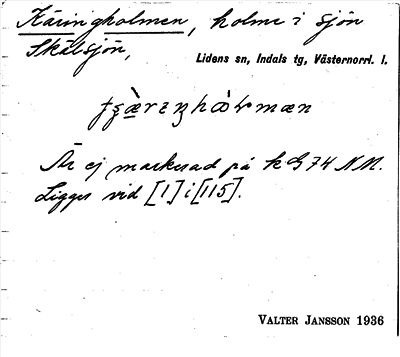 Käringholmen, holme i sjön
Skälsjön,
Lidens sn, Indals tg, Västernorrl. l.
Är ej markerad på kG 74 NM.
Ligger vid [1] i [115].
VALTER JANSSON 1936